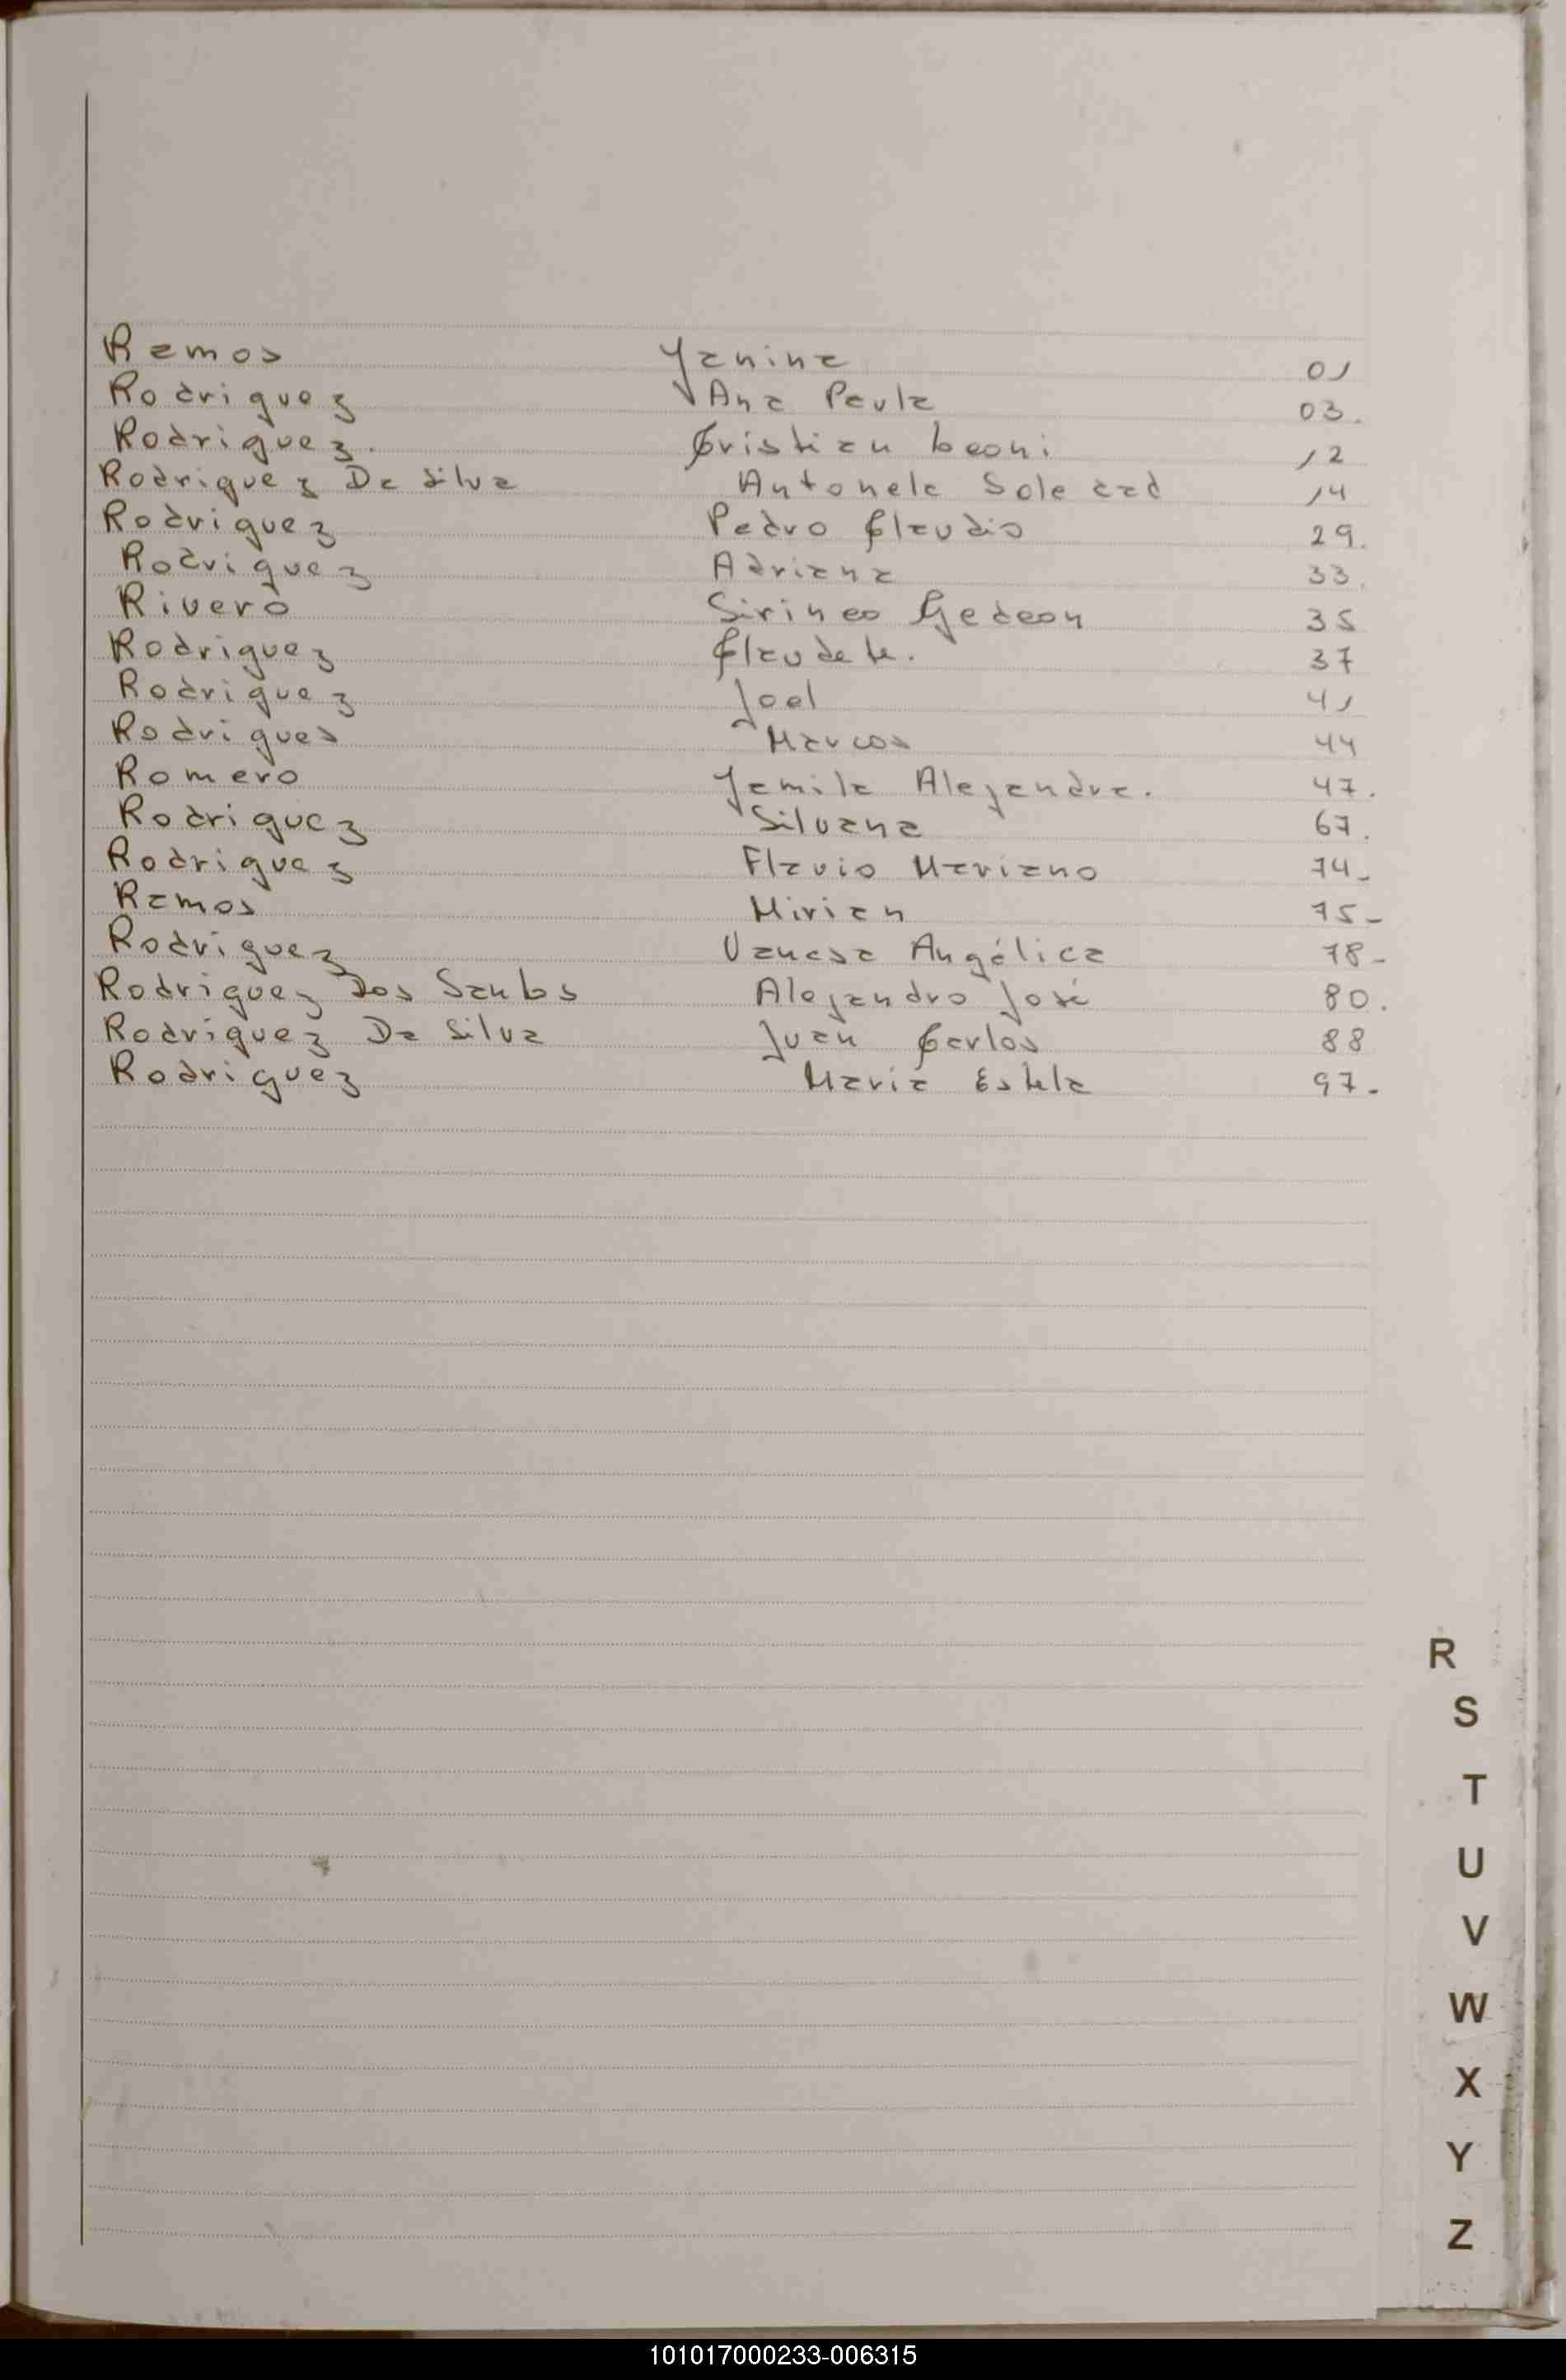 Ramos Yanina 01
Rodriguez Ana Paula 03.
Rodriguez. Cristian Leoni 12
Rodriguez Da Silva Antonela Soledad 14
Rodriguez Pedro Claudio 29.
Rodriguez Adriana 33.
Rivero Sirineo Gedeon 35
Rodriguez Claudete. 37
Rodriguez Joel 41
Rodrigues Marcos 44
Romero Yamila Alejandra. 47.
Rodriguez Silvana 67.
Rodriguez Flavio Mariano 74-
Ramos Mirian 75-
Rodriguez Vanesa Angélica 78-
Rodriguez Dos Santos Alejandro José 80.
Rodriguez Da Silva Juan Carlos 88
Rodriguez Maria Estela 97-
R
S
T
U
V
W
X
Y
Z
101017000233-006315